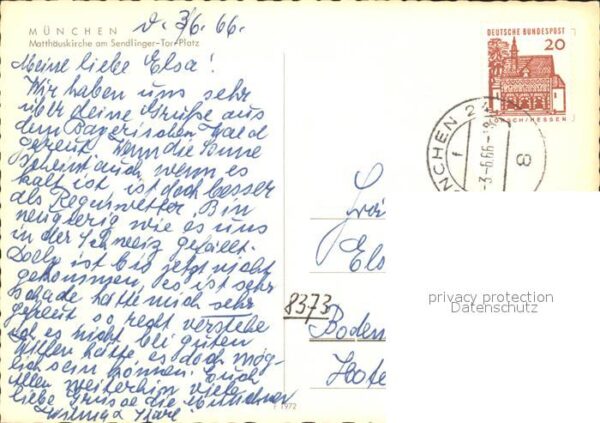 MÜNCHEN
Matthäuskirche am Sendlinger-Tor-Platz
d. 3/6. 66.
Meine liebe Elsa!
Wir haben uns sehr
über deine Grüße aus
dem Bayerischen Wald
gefreut. Wenn die Sonne
scheint auch wenn es
kalt ist, ist doch besser
als Regenwetter. Bin
neugierig wie es uns
in der Schweiz gefällt.
ist bis jetzt nicht
gekommen, es ist sehr
schade hätte mich sehr
gefreut so recht verstehe
ich es nicht bei guten
Willen hätte es doch mög-
lich sein können. Euch
allen weiterhin viele
liebe Grüsse die Münchner
DEUTSCHE BUNDESPOST
20
LORSCH/HESSEN
MÜNCHEN 2
-3.-6.66-18
f
8
Els
8373
Boden
Hote
privacy protection
Datenschutz
F 1972